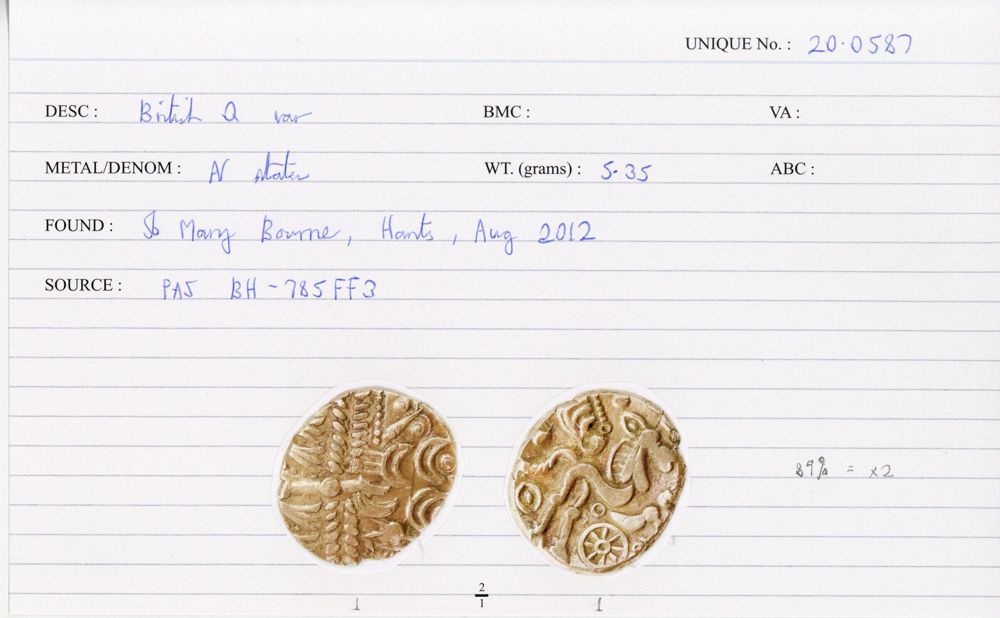 UNIQUE No. : 20.0587
DESC : British Q var BMC : VA :
METAL/DENOM : AV stater WT. (grams) : 5.35 ABC :
FOUND : St Mary Bourne, Hants, Aug 2012
SOURCE : PAS BH-785FF3
89% = x2
2
1
1 1